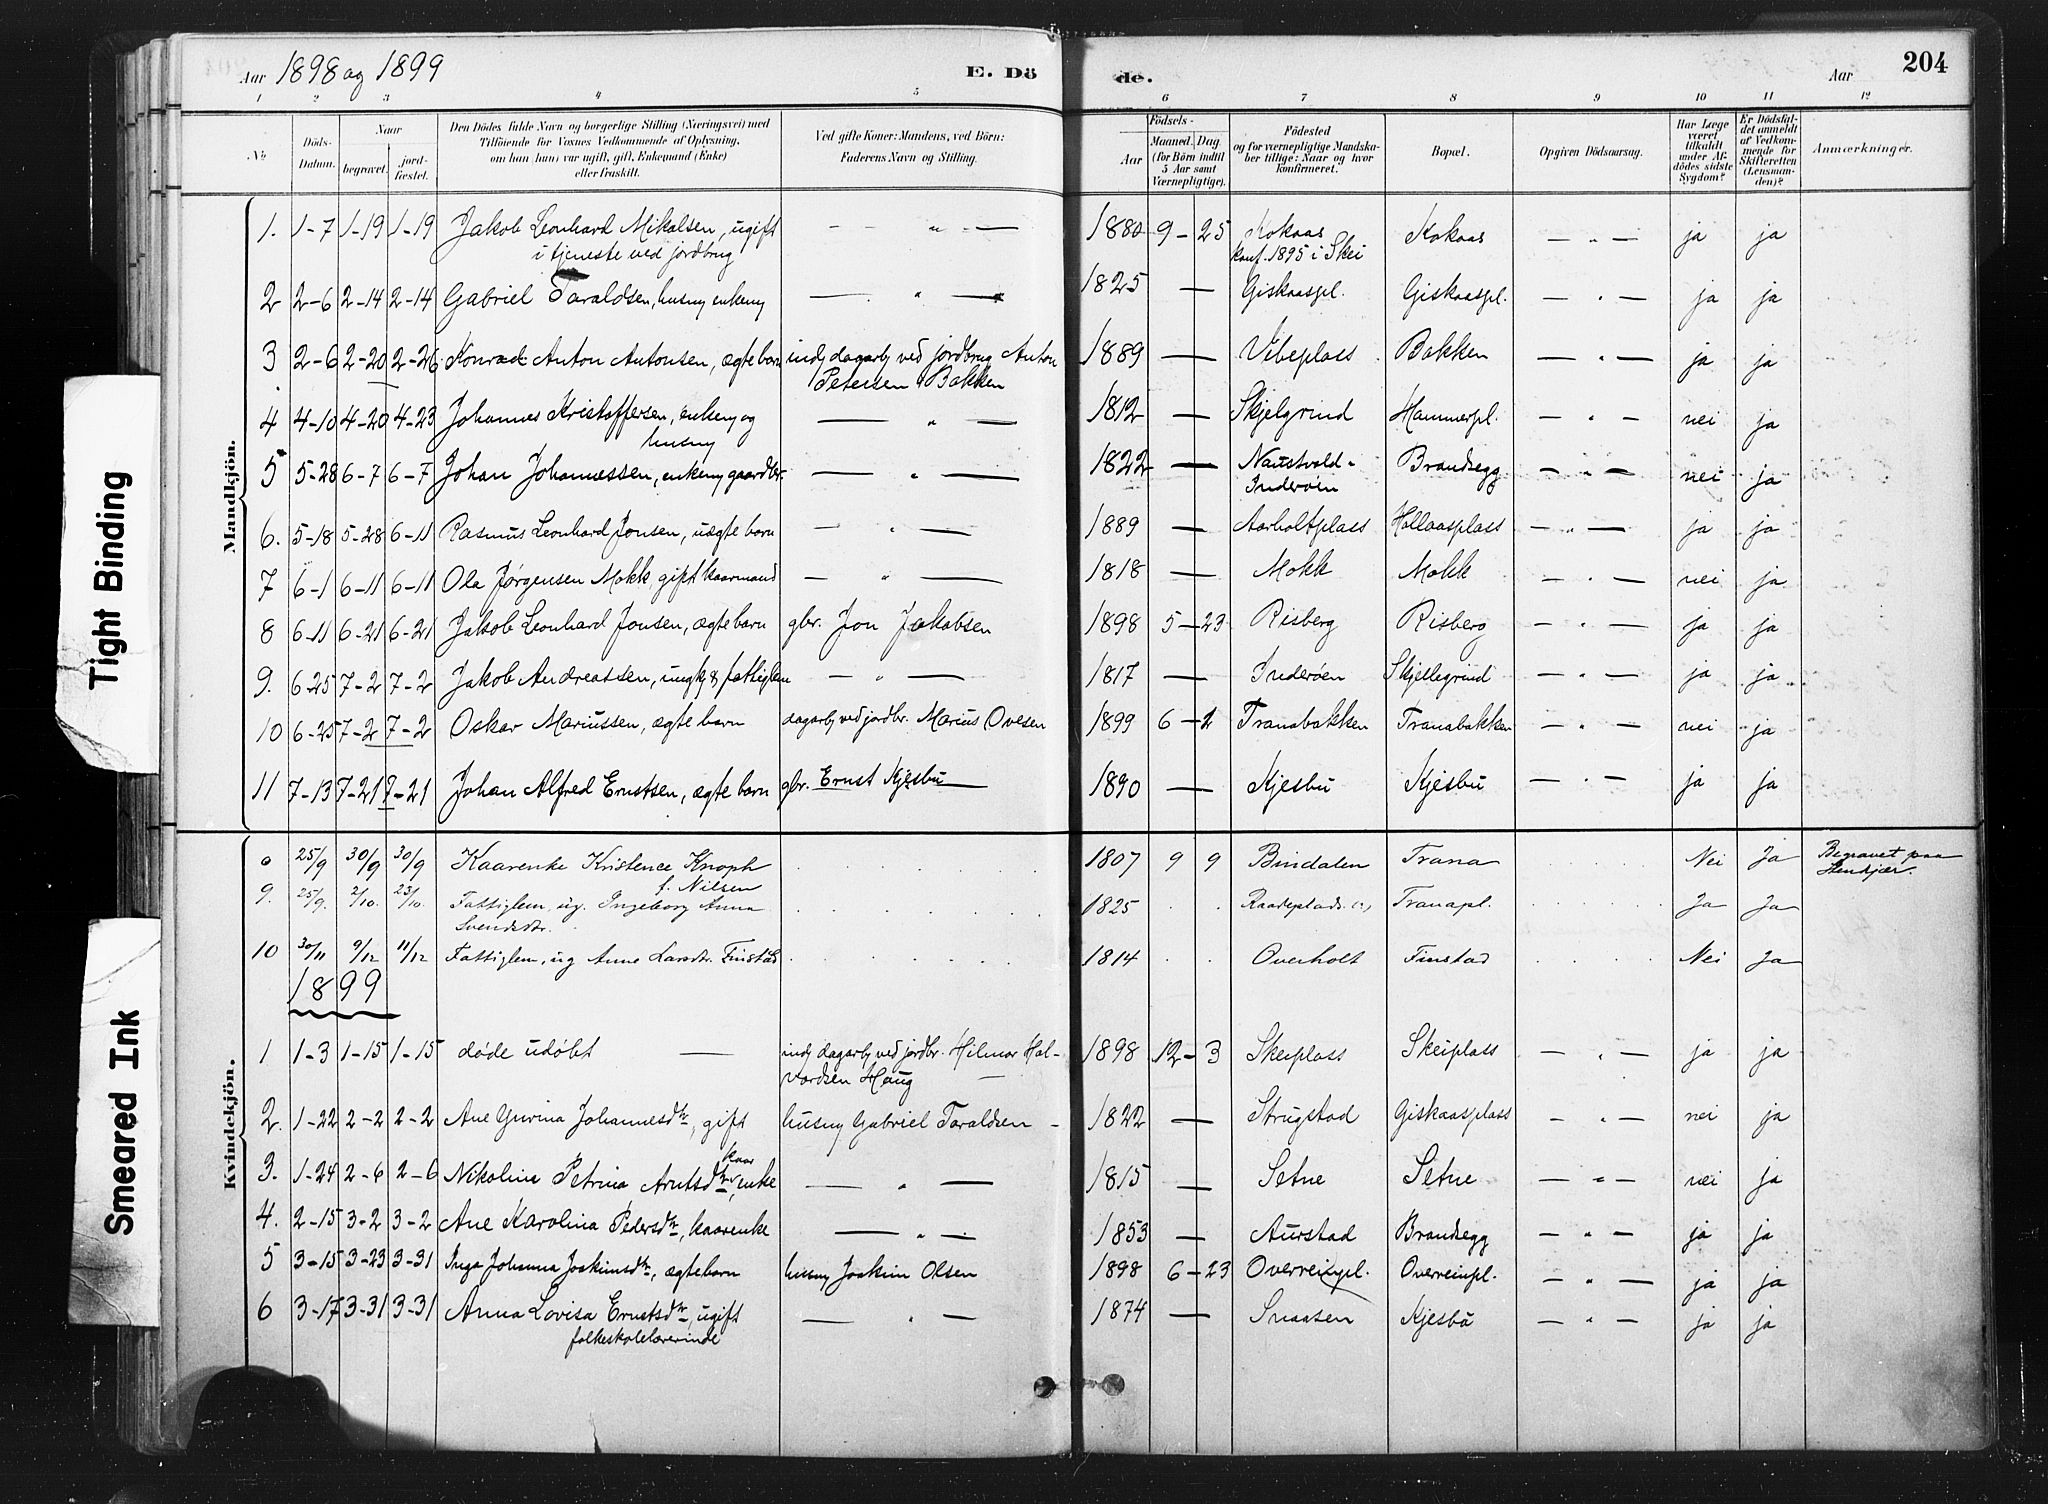 Aar 1898 og 1899 E. Dö de. Aar 204
1 2 3 4 5 6 7 8 9 10 11 12
No
Döds-Datum.
Naar
begravet.
jord-fæstet.
Den Dödes fulde Navn og borgerlige Stilling (Næringsvei) med
Tilföiende for Voxnes Vedkommende af Oplysning,
om han (hun) var ugift, gift, Enkemand (Enke)
eller fraskilt.
Ved gifte Koner: Mandens, ved Börn:
Faderens Navn og Stilling.
Födsels-
Aar
Maaned. Dag
(for Börn indtil
5 Aar samt
Værnepligtige).
Födested
og for værnepligtige Mandska-
ber tillige: Naar og hvor
konfirmeret.
Bopæl.
Opgiven Dödsaarsag.
Har Læge
været
tilkaldt
under Af-
dödes sidste
Sygdom?
Er Dödsfal-
det anmeldt
af Vedkom-
mende for
Skifteretten
(Lensman-
den)?
Anmærkninger.
Mandkjön.
1. 1-7 1-19 1-19 Jakob Leonhard Mikalsen, ugift — " — 1880 9 - 25 Kokaas Kokaas — " — ja ja
i tjeneste ved jordbrug konf. 1895 i Skei
2 2-6 2-14 2-14 Gabriel Taraldsen, husm enkem — " — 1825 — Giskaaspl. Giskaaspl. — " — ja ja
3 2-6 2-20 2-26 Konrad Anton Antonsen, ægte barn indr dagarb ved jordbrug Anton 1889 — Vibeplass Bakken — " — ja ja
Petersen Bakken
4 4-10 4-20 4-23 Johannes Kristoffersen, enkem og — " — 1812 — Skjelgrind Hammerpl. — " — nei ja
husm
5 5-28 6-7 6-7 Johan Johannessen, enkem gaardbr. — " — 1822 — Naustvold - Brandsegg — " — nei ja
Inderøen
6. 5-18 5-28 6-11 Rasmus Leonhard Jonsen, uægte barn — " — 1889 — Aarholtplass Hollaasplass — " — ja ja
7 6-1 6-11 6-11 Ola Jørgensen Mokk gift kaarmand — " — 1818 — Mokk Mokk — " — nei ja
8 6-11 6-21 6-21 Jakob Leonhard Jonsen, ægte barn gbr. Jon Jakobsen 1898 5 - 23 Risberg Risberg — " — ja ja
9. 6-25 7-2 7-2 Jakob Andreassen, ungk & fattiglem — " — 1817 — Inderøen Skjellegrind — " — ja ja
10 6-25 7-2 7-2 Oskar Mariussen, ægte barn dagarb ved jordbr. Marius Ovesen 1899 6 - 2 Tranabakken Tranabakken — " — nei ja
11 7-13 7-21 7-21 Johan Alfred Ernstsen, ægte barn gbr. Ernst Kjesbu — 1890 — Kjesbu Kjesbu — " — ja ja
Kvindekjön.
25/9 30/9 30/9 Kaarenke Kristence Knoph 1807 9 9 Bindalen Trana Nei Ja Begravet paa
f. Nilsen Stenkjær.
9. 25/9. 2/10. 23/10. Fattiglem, ug. Ingeborg Anna 1825 Tranapl. Ja Ja
Svendsdtr.
10 30/11 9/12 11/12 Fattiglem, ug Anne Larsdtr. Finstad 1814 Overholt Finstad Nei Ja
1899
1 1-3 1-15 1-15 døde udøbt — indr dagarb ved jordbr. Hilmar Hal- 1898 12 - 3 Skeiplass Skeiplass — " — ja ja
vardsen Haug —
2. 1-22 2-2 2-2 Ane Gurina Johannesdtr, gift husm Gabriel Taraldsen - 1822 — Strugstad Giskaasplass — " — nei ja
3. 1-24 2-6 2-6 Nikoline Petrina Arntsdtr, kaarenke — " — 1815 — Setne Setne — " — nei ja
4. 2-15 3-2 3-2 Ane Karolina Pedersdtr, kaarenke — " — 1853 — Aurstad Brandsegg — " — ja ja
5 3-15 3-23 3-31 Inga Johanna Joakimsdtr, ægte barn husm Joakim Olsen 1898 6 - 23 Overreinpl. Overreinpl. — " — ja ja
6 3-17 3-31 3-31 Anna Lovisa Ernstsdtr, ugift — " — 1874 — Snaasen Kjesbu — " — ja ja
folkeskolelærerinde
Tight Binding
Smeared Ink